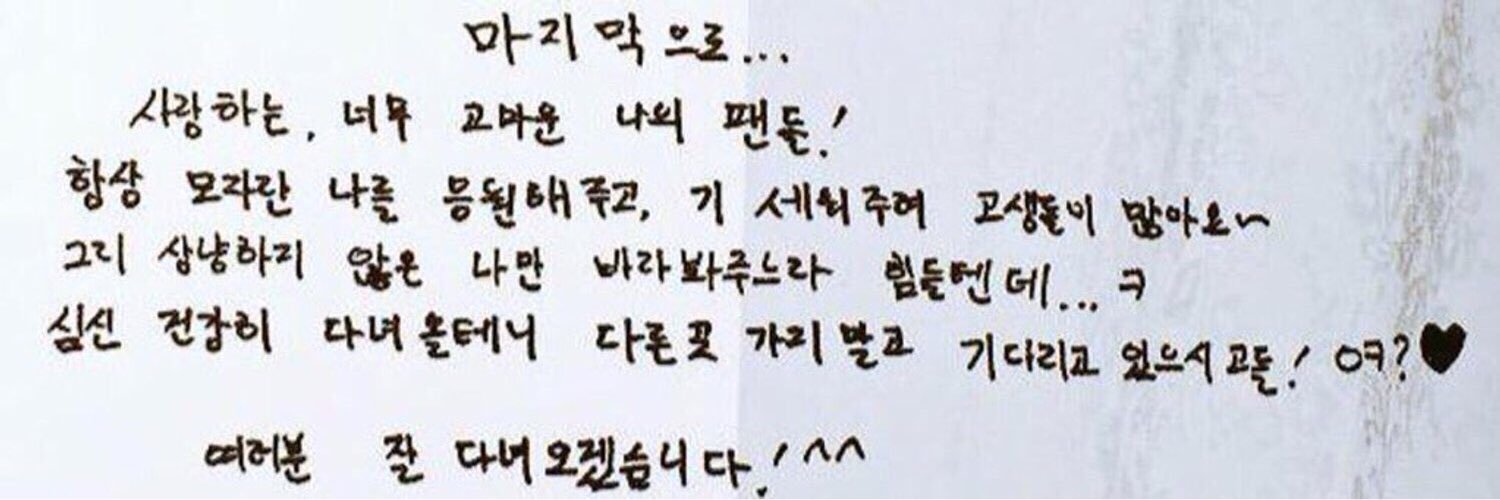 마지막으로...
사랑하는, 너무 고마운 나의 팬들!
항상 모자란 나를 응원해주고, 기 세워주며 고생들이 많아요~
그리 상냥하지 않은 나만 바라봐주느라 힘들텐데... ㅋ
심신 건강히 다녀올테니 다른곳 가지말고 기다리고 있으시고들! OK?♥
여러분 잘 다녀오겠습니다! ^^